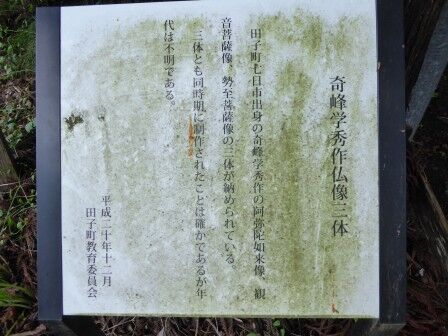 奇峰学秀作仏像三体
田子町七日市出身の奇峰学秀作の阿弥陀如来像、観
音菩薩像、勢至菩薩像の三体が納められている。
三体とも同時期に制作されたことは確かであるが年
代は不明である。
平成二十年十二月
田子町教育委員会